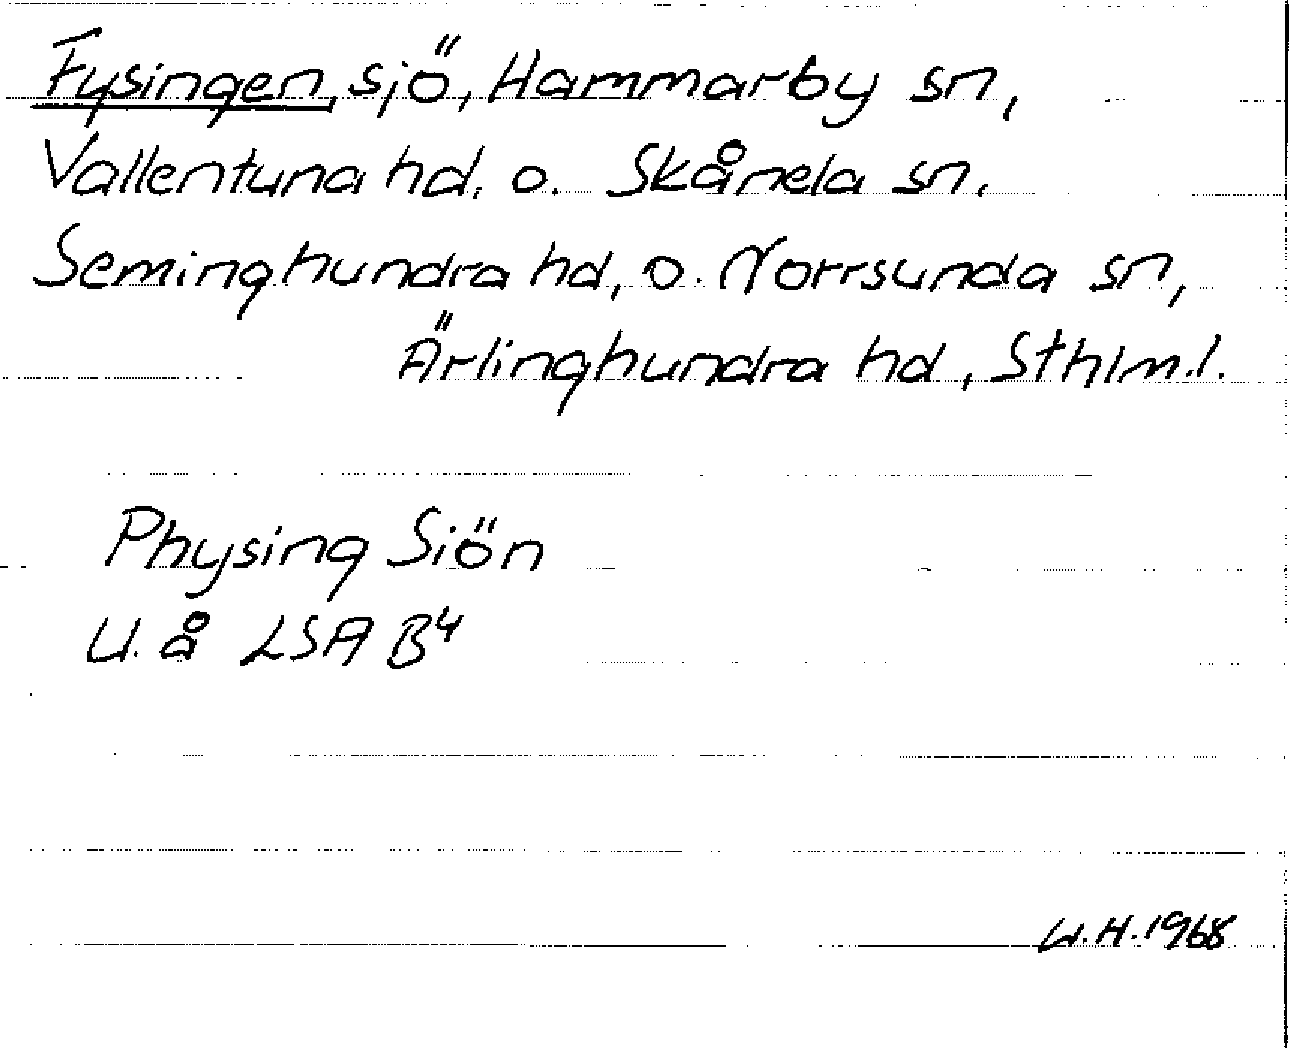 Fysingen, sjö, Hammarby sn,
Vallentuna hd, o. Skånela sn.
Seminghundra hd, o. Norrsunda sn,
Ärlinghundra hd, Sthlm.l.
Physing Siön
U. å LSA B4
W.H. 1968